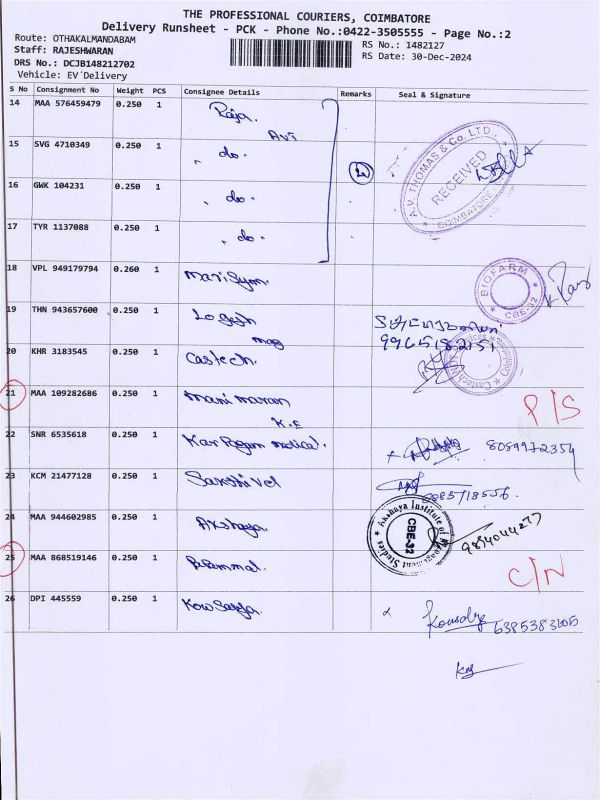 THE PROFESSIONAL COURIERS, COIMBATORE
Delivery Runsheet - PCK - Phone No.:0422-3505555 - Page No.:2
Route: OTHAKALMANDABAM
Staff: RAJESHWARAN
RS No.: 1482127
DRS No.: DCJB148212702
RS Date: 30-Dec-2024
Vehicle: EV Delivery
S No Consignment No Weight PCS Consignee Details Remarks Seal & Signature
14 MAA 576459479 0.250 1 Raja.
15 SVG 4710349 0.250 1 " do.
16 GWK 104231 0.250 1 " do.
17 TYR 1137088 0.250 1 " do.
A.V. THOMAS & Co. LTD.,
RECEIVED
COIMBATORE
18 VPL 949179794 0.260 1
BIOFARM
CBE-32
19 THN 943657600 0.250 1 Logesh
9965182151
20 KHR 3183545 0.250 1 Castech.
21 MAA 109282686 0.250 1 Mani maran
K.E
P/S
22 SNR 6535618 0.250 1 8089972354
23 KCM 21477128 0.250 1 Sarethi vel
24 MAA 944602985 0.250 1 Akshaya.
Akshaya Institute of Management Studies
CBE-32
25 MAA 868519146 0.250 1
C/N
26 DPI 445559 0.250 1